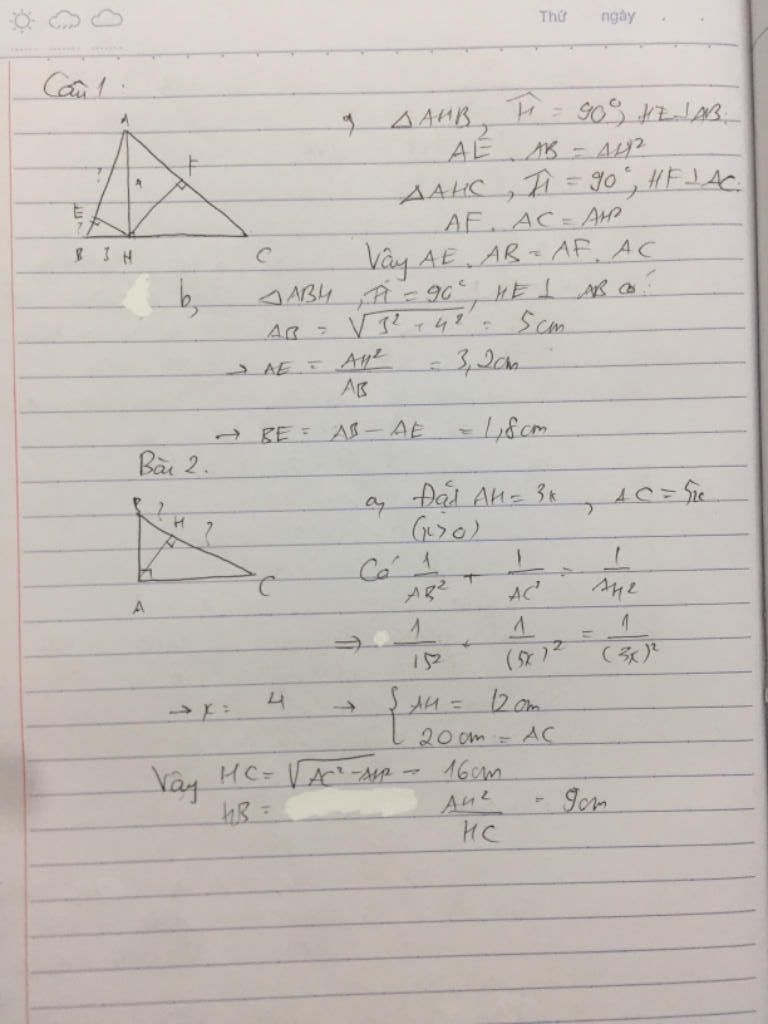 Thứ ngày
Câu 1.
A
?
4
F
E
?
B 3 H C
a, △AHB, Ĥ = 90°, HE⊥AB.
AE . AB = AH²
△AHC, Ĥ = 90°, HF⊥AC.
AF . AC = AH²
Vậy AE . AB = AF . AC
b, △ABH, Ĥ = 90°, HE ⊥ AB có:
AB = √(3² + 4²) = 5cm
→ AE = AH²/AB = 3,2cm
→ BE = AB – AE = 1,8cm
Bài 2.
B ?
H ?
A
C
a, Đặt AH = 3x, AC = 5x
(x>0)
Có 1/AB² + 1/AC² = 1/AH²
⇒ 1/15² + 1/(5x)² = 1/(3x)²
→ x = 4 → { AH = 12cm
20cm = AC
Vậy HC = √(AC² – AH²) = 16cm
HB = AH²/HC = 9cm